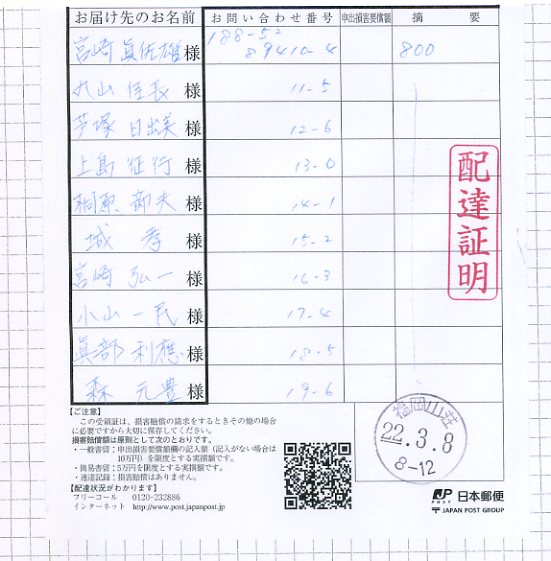 お届け先のお名前 お問い合わせ番号 申出損害要償額 摘要
宮崎 眞佐雄 様 188-52 89410-4 800
丸山 佳長 様 11-5
夢塚 日出美 様 12-6
上島 征行 様 13-0
桐原 節夫 様 14-1
城 孝 様 15-2
宮崎 弘一 様 16-3
小山 一民 様 17-4
眞部 利應 様 18-5
森 元豊 様 19-6
配達証明
【ご注意】
この受領証は、損害賠償の請求をするときその他の場合
に必要ですから大切に保存してください。
損害賠償額は原則として次のとおりです。
・一般書留:申出損害要償額欄の記入額(記入がない場合は
10万円)を限度とする実損額です。
・簡易書留:5万円を限度とする実損額です。
・速達記録:損害賠償はありません。
【配達状況がわかります】
フリーコール 0120-232886
インターネット http://www.post.japanpost.jp/
福岡山荘
22.3.8
8-12
JP 日本郵便
POST 〒 JAPAN POST GROUP